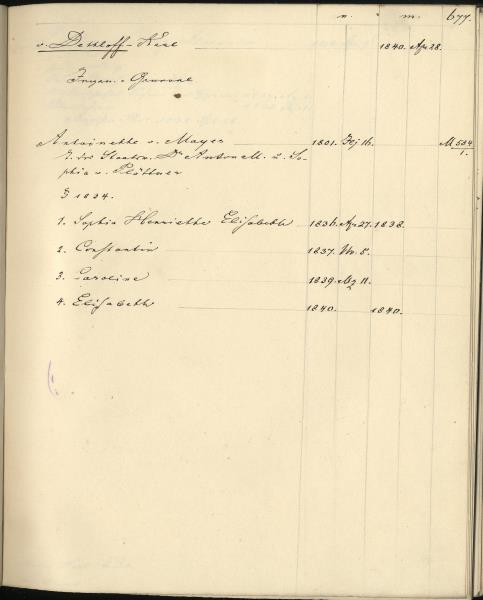 n. m. 677.
v. Dethloff Karl 1840. Ap 28.
Ingen. General
Antoinette v. Mayer 1801. 16. M 534/1.
T. des Staatsr. Dr Anton M. u. So-
phia v. Plöttner
1834.
1. Sophia Henriette Elisabeth 1836. Ap 27. 1838.
2. Constantin 1837. 5.
3. Caroline 1839. Mz 11.
4. Elisabeth 1840. 1840.